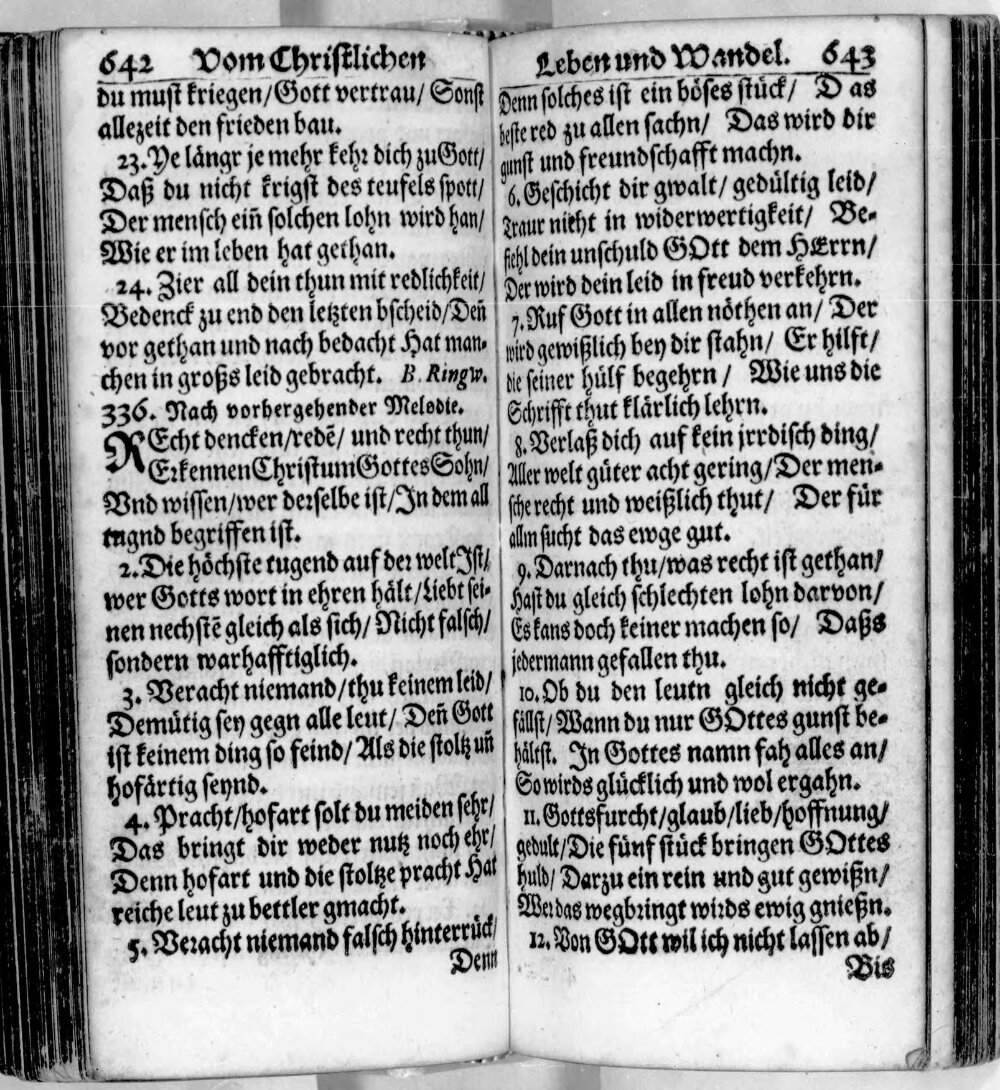 642 Vom Christlichen
du must kriegen/Gott vertrau/ Sonst
allezeit den frieden bau.
23. Ye längr je mehr kehr dich zu Gott/
Daß du nicht krigst des teufels spott/
Der mensch ein̄ solchen lohn wird han/
Wie er im leben hat gethan.
24. Zier all dein thun mit redlichkeit/
Bedenck zu end den letzten bscheid/Den̄
vor gethan und nach bedacht Hat man-
chen in großs leid gebracht. B. Ringw.
336. Nach vorhergehender Melodie.
REcht dencken/redē/ und recht thun/
Erkennen Christum Gottes Sohn/
Vnd wissen/wer derselbe ist/In dem all
tugnd begriffen ist.
2. Die höchste tugend auf der welt Ist/
wer Gotts wort in ehren hält/Liebt sei-
nen nechstē gleich als sich/Nicht falsch/
sondern warhafftiglich.
3. Veracht niemand/thu keinem leid/
Demütig sey gegn alle leut/ Den̄ Gott
ist keinem ding so feind/Als die stoltz un̄
hofärtig seynd.
4. Pracht/hofart solt du meiden sehr/
Das bringt dir weder nutz noch ehr/
Denn hofart und die stoltze pracht Hat
reiche leut zu bettler gmacht.
5. Veracht niemand falsch hinterrück/
Denn
Leben und Wandel. 643
Denn solches ist ein böses stück/ Das
beste red zu allen sachn/ Das wird dir
gunst und freundschafft machn.
6. Geschicht dir gwalt/ gedültig leid/
Traur nicht in widerwertigkeit/ Be-
fiehl dein unschuld GOtt dem HErrn/
Der wird dein leid in freud verkehrn.
7. Ruf Gott in allen nöthen an/ Der
wird gewißlich bey dir stahn/ Er hilft/
die seiner hülf begehrn/ Wie uns die
Schrifft thut klärlich lehrn.
8. Verlaß dich auf kein jrrdisch ding/
Aller welt güter acht gering/Der men-
sche recht und weißlich thut/ Der für
allm sucht das ewge gut.
9. Darnach thu/was recht ist gethan/
Hast du gleich schlechten lohn darvon/
Es kans doch keiner machen so/ Daßs
jedermann gefallen thu.
10. Ob du den leutn gleich nicht ge-
fällst/Wann du nur GOttes gunst be-
hältst. In Gottes namn fah alles an/
So wirds glücklich und wol ergahn.
11. Gottsfurcht/glaub/lieb/hoffnung/
gedult/Die fünf stück bringen GOttes
huld/ Darzu ein rein und gut gewißn/
Wer das wegbringt wirds ewig gnießn.
12. Von GOtt wil ich nicht lassen ab/
Bis